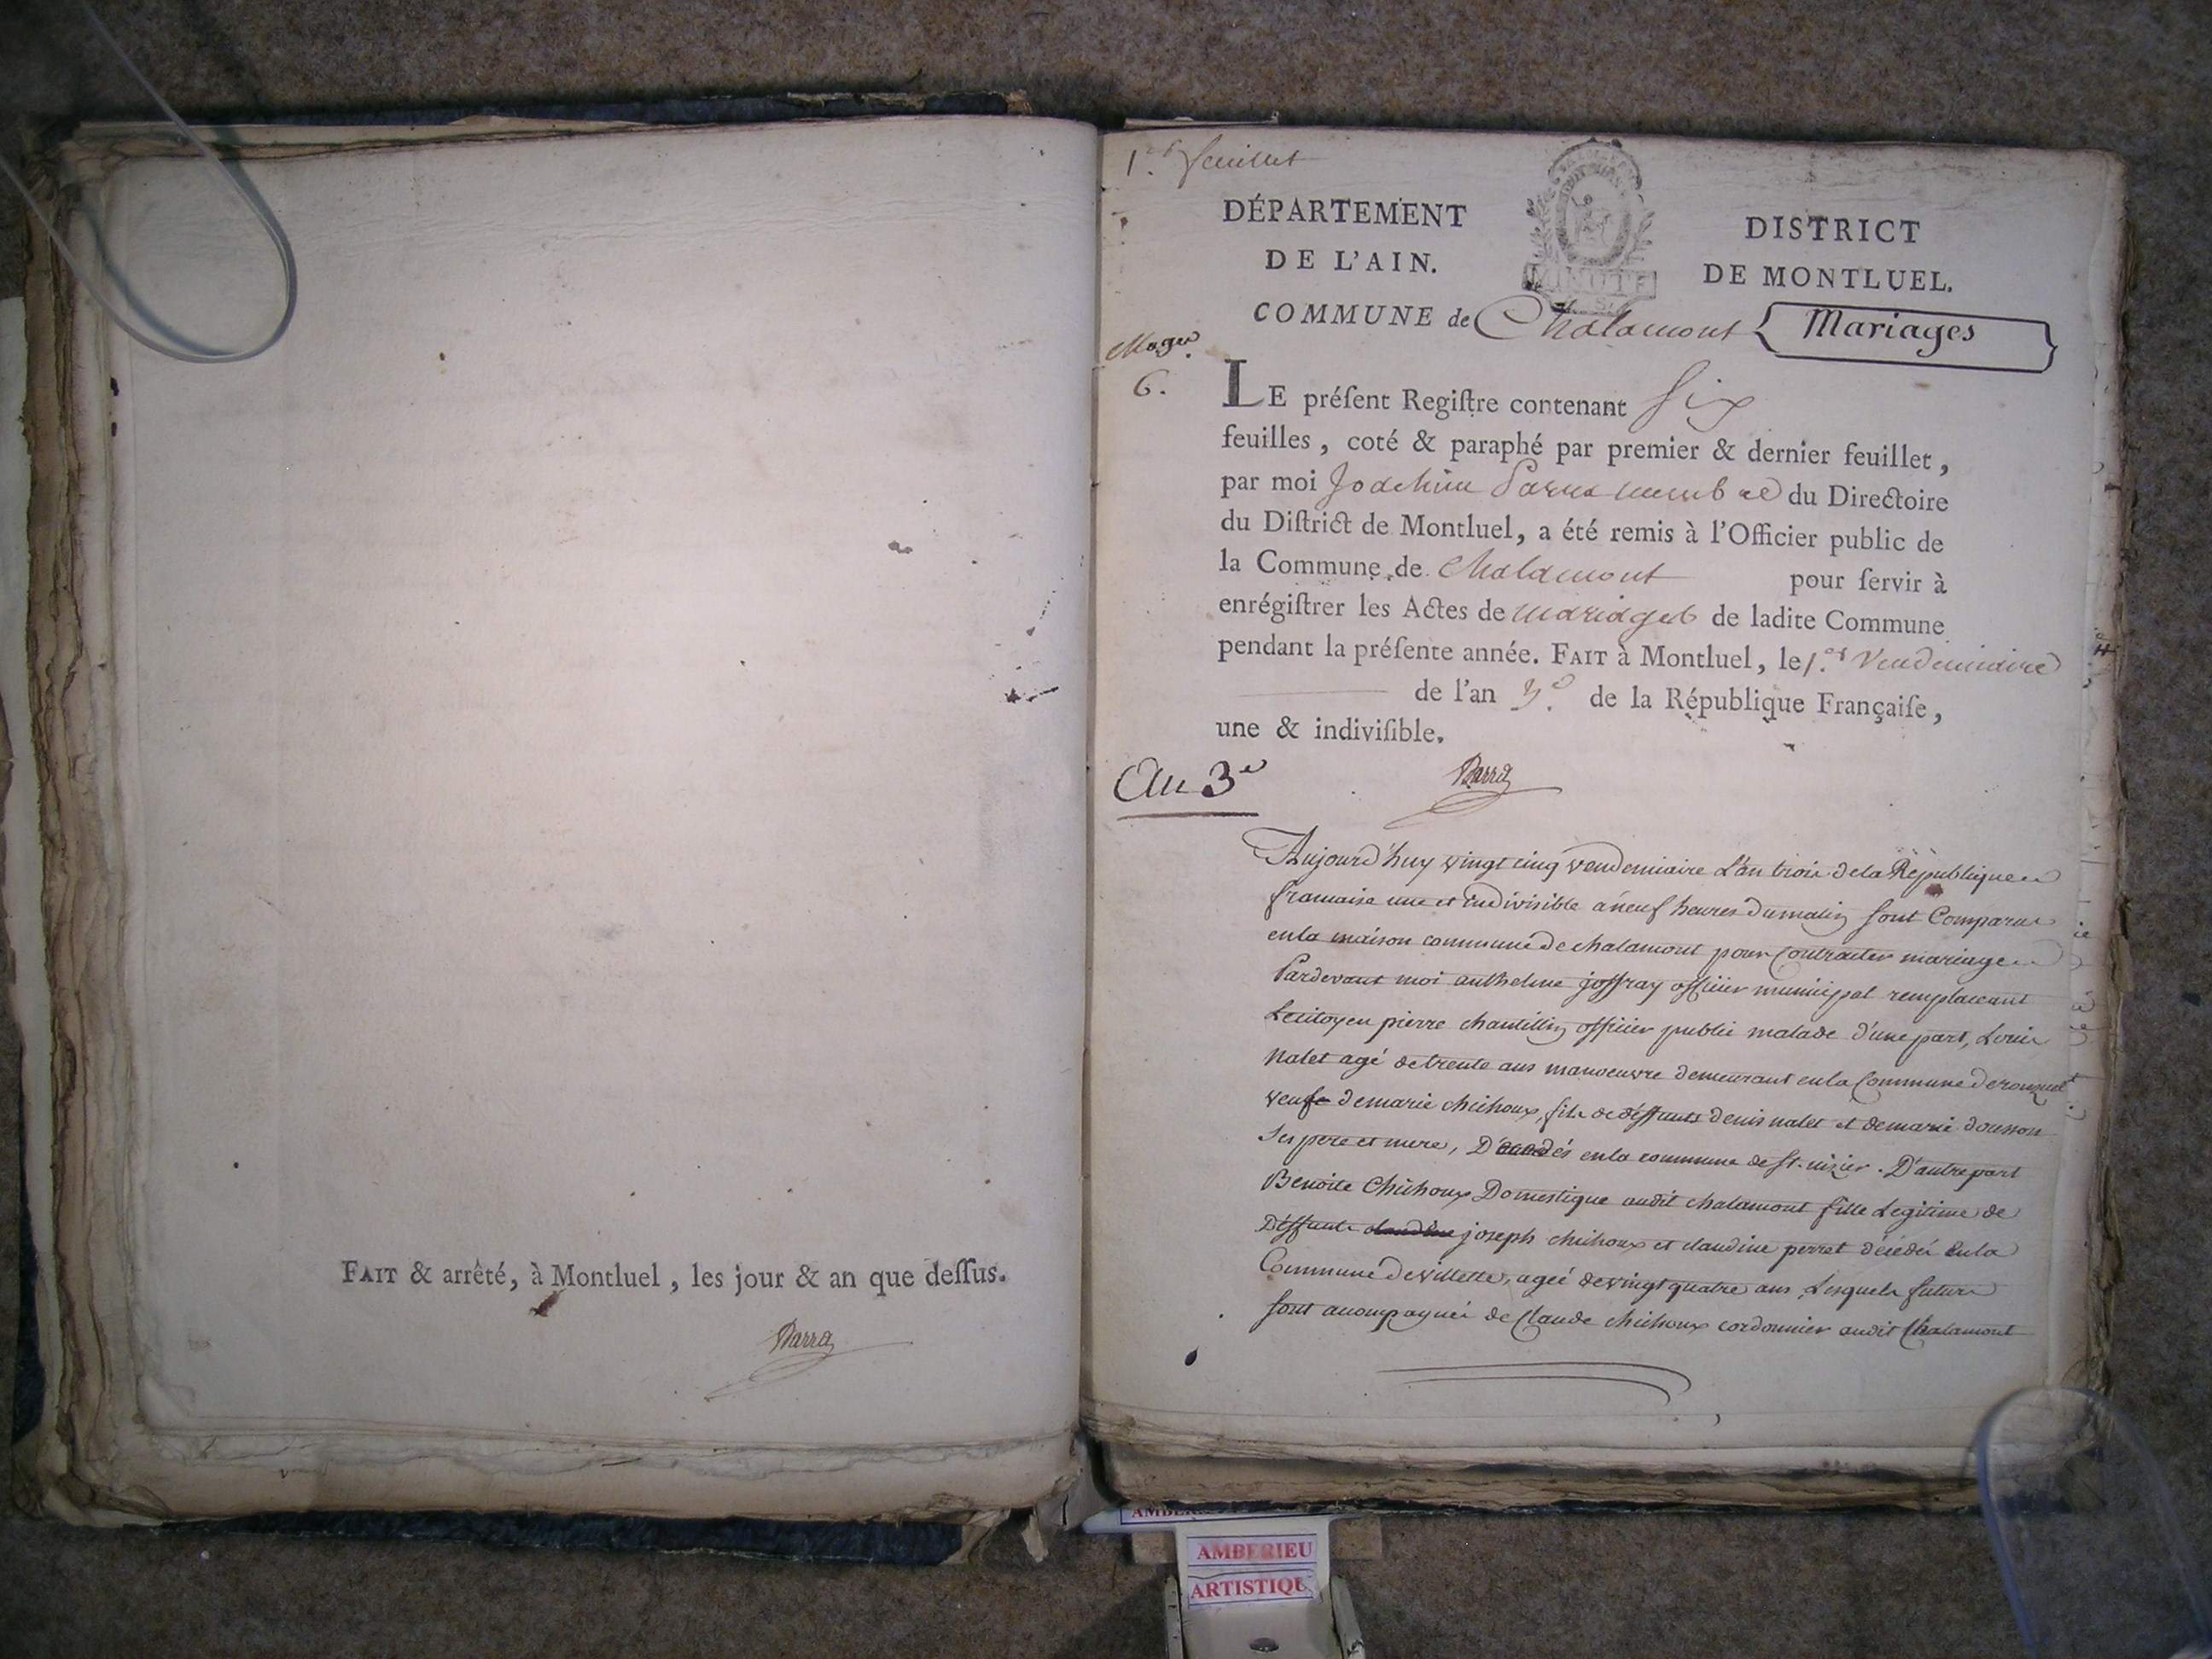 FAIT & arrêté, à Montluel, les jour & an que deſſus.
1er feuillet
DÉPARTEMENT
DE L'AIN.
MINUTE
DISTRICT
DE MONTLUEL.
COMMUNE de Chalamont { Mariages }
Mages
6.
LE préſent Regiſtre contenant Six
feuilles, coté & paraphé par premier & dernier feuillet,
par moi Joachim membre du Directoire
du Diſtrict de Montluel, a été remis à l'Officier public de
la Commune de Chalamont pour ſervir à
enrégiſtrer les Actes de mariages de ladite Commune
pendant la préſente année. FAIT à Montluel, le 1.er Vendemiaire
de l'an 3.e de la République Françaiſe,
une & indiviſible.
An 3e
Aujourd'huy vingt cinq vendemiaire L'an trois de la République
francaise une et indivisible a neuf heures du matin sont Comparus
en la maison commune de chalamont pour Contracter mariage
Pardevant moi anthelme joffray officier municipal remplacant
Le citoyen pierre chantillin officier public malade d'une part, Louis
Nalet agé de trente ans manoeuvre demeurant en la Commune de ronzuel
veuf de marie chichoux, fils de déffunts denis nalet et de marie dousson
ses pere et mere, Décédés en la commune de St. nizier. D'autre part
Benoite Chichoux Domestique audit chalamont fille Legitime de
Déffunts claudine joseph chichoux et claudine perret décédés En la
Commune de villette, ageé de vingt quatre ans, Lesquels futurs
sont acompagnés de Claude chichoux cordonnier audit Chalamont
AMBERIEU
ARTISTIQU